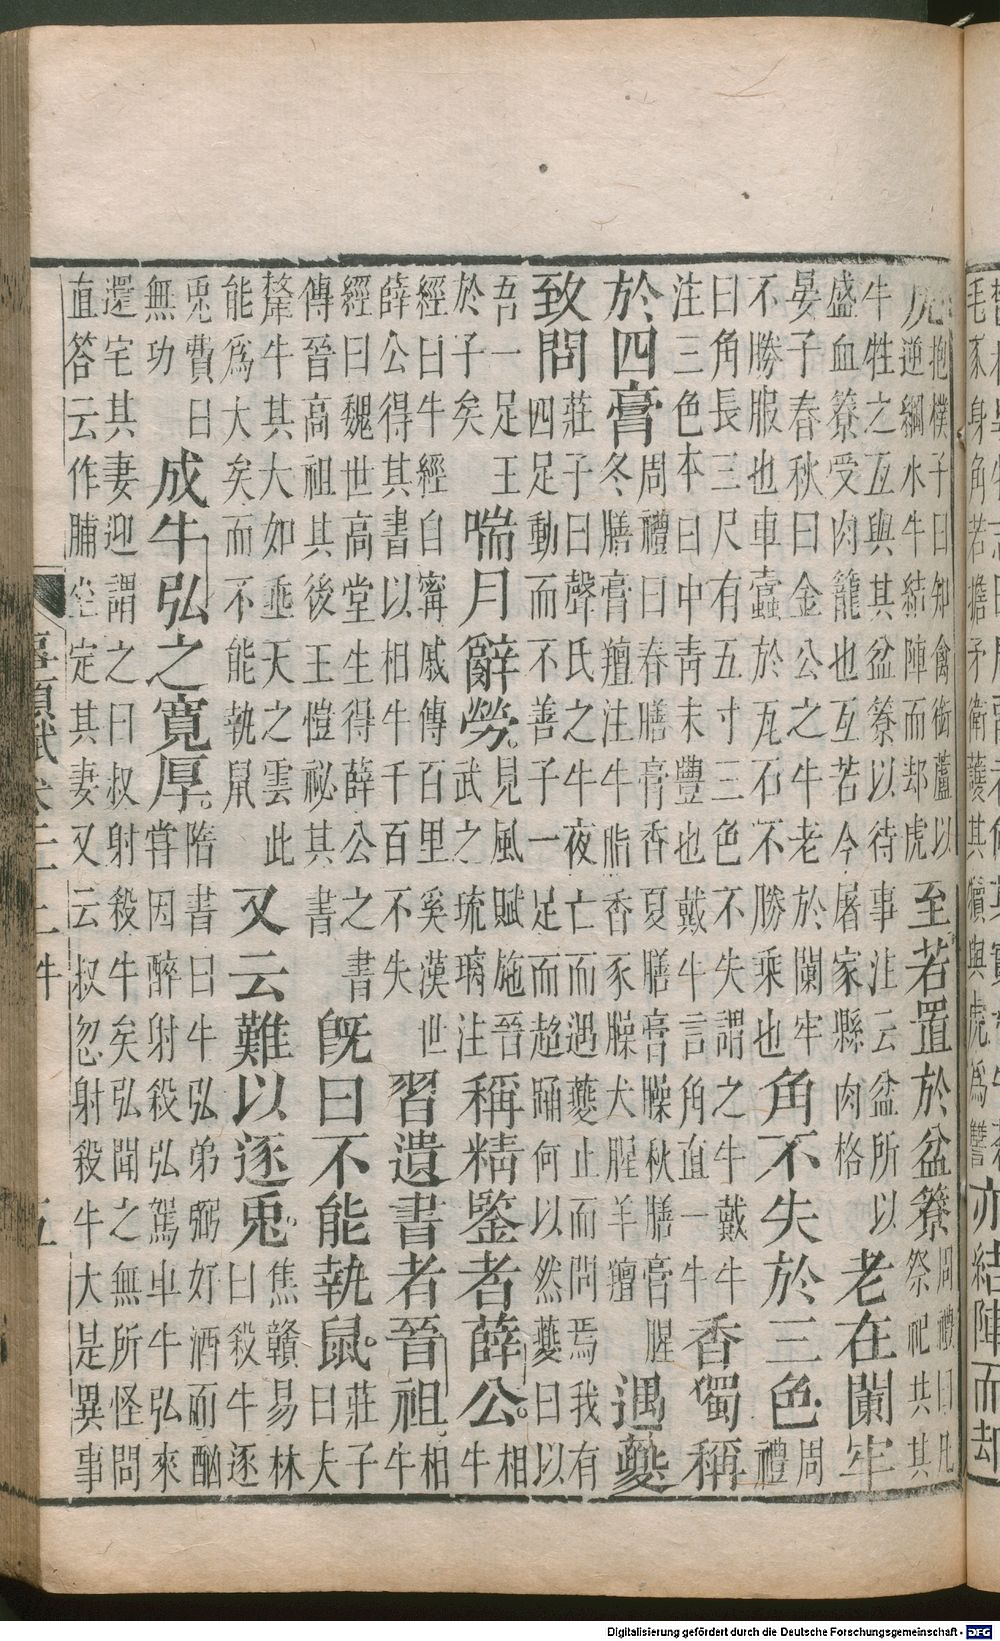 毛豕身角若擔矛衛護其犢與虎爲讐亦結陣而却
虎抱樸子曰知禽銜蘆以逆綱水牛結陣而却虎至若置於盆簝周禮曰凡祭祀共其
牛牲之互與其盆簝以待事注云盆所以盛血簝受肉籠也互若今屠家縣肉格老在闌牢
晏子春秋曰金公之牛老於闌牢不勝服也車蠹於瓦石不勝乘也角不失於三色周禮
曰角長三尺有五寸三色不失謂之牛戴牛注三色本曰中靑末豐也戴牛言角直一牛香獨稱
於四膏周禮曰春膳膏香夏膳膏臊秋膳膏腥冬膳膏羶注牛脂香豕臊犬腥羊羶遇夔
致問莊子曰聲氏之牛夜亡而遇夔止而問焉我有四足動而不善子一足而超踊何以然夔曰以
吾一足王於子矣喘月辭勞。見風賦施晉武之琉璃注稱精鑒者薛公。相牛
經曰牛經自甯戚傳百里奚漢世薛公得其書以相牛千百不失習遺書者晉祖相牛
經曰魏世高堂生得薛公之書傳晉高祖其後王愷祕其書旣曰不能執鼠。莊子曰夫
犛牛其大如埀天之雲此能爲大矣而不能執鼠又云難以逐兎。焦贛易林曰殺牛逐
兎費日無功成牛弘之寬厚。隋書曰牛弘弟弼好酒而酗嘗因醉射殺弘駕車牛弘來
還宅其妻迎謂之曰叔射殺牛矣弘聞之無所怪問直答云作脯坐定其妻又云叔忽射殺牛大是異事
五
Digitalisierung gefördert durch die Deutsche Forschungsgemeinschaft - DFG